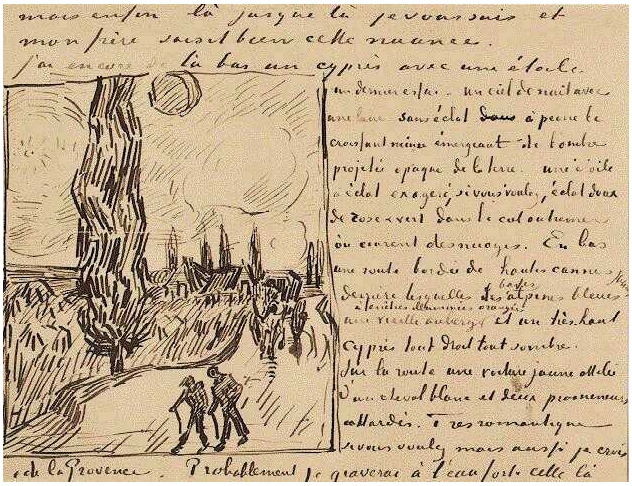 mais enfin là jusque là je vous suis et
mon frère saisit bien cette nuance.
j'ai encore de là bas un cyprès avec une étoile
un dernier essai – un ciel de nuit avec
une lune sans éclat dans à peine le
croissant mince émergeant de l'ombre
projetée opaque de la terre – une étoile
à éclat exageré, si vous voulez, éclat doux
de rose & vert dans le ciel outremer
où courent des nuages. En bas
une route bordée de hautes cannes jaunes
derrière lesquelles les basses alpines bleues
une vieille auberge à fenêtres illuminées orangée et un très haut
cyprès tout droit tout sombre.
Sur la route une voiture jaune attelée
d'un cheval blanc et deux promeneurs
attardés. Très romantique
si vous voulez mais aussi je crois
de la Provence. Probablement je graverai à l'eau forte celle là